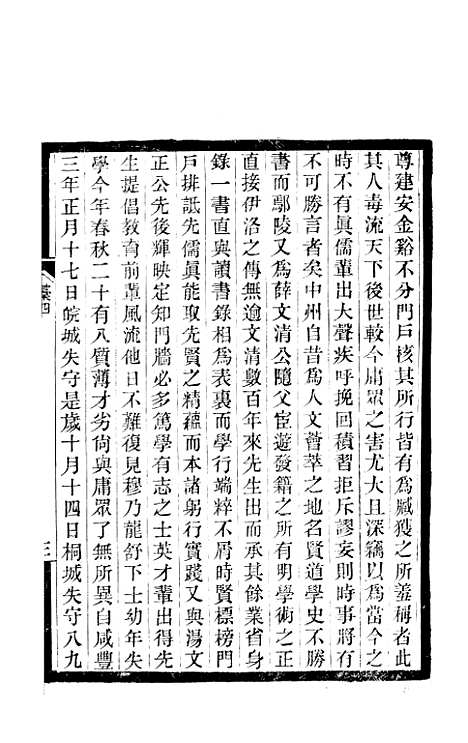 尊建安金谿不分門戶核其所行皆有爲臧獲之所羞稱者此
其人毒流天下後世較今庸眾之害尤大且深竊以爲當今之
時不有眞儒輩出大聲疾呼挽回積習拒斥謬妄則時事將有
不可勝言者矣中州自昔爲人文薈萃之地名賢道學史不勝
書而鄢陵又爲薛文清公隨父宦遊發籍之所有明學術之正
直接伊洛之傳無逾文清數百年來先生出而承其餘業省身
錄一書直與讀書錄相爲表裏而學行端粹不屑時賢標榜門
戶排詆先儒眞能取先賢之精蘊而本諸躬行實踐又與湯文
正公先後輝映定知門牆必多篤學有志之士英才輩出得先
生提倡敎育前輩風流他日不難復見穆乃龍舒下士幼年失
學今年春秋二十有八質薄才劣尙與庸眾了無所異自咸豐
三年正月十七日皖城失守是歲十月十四日桐城失守八九
三